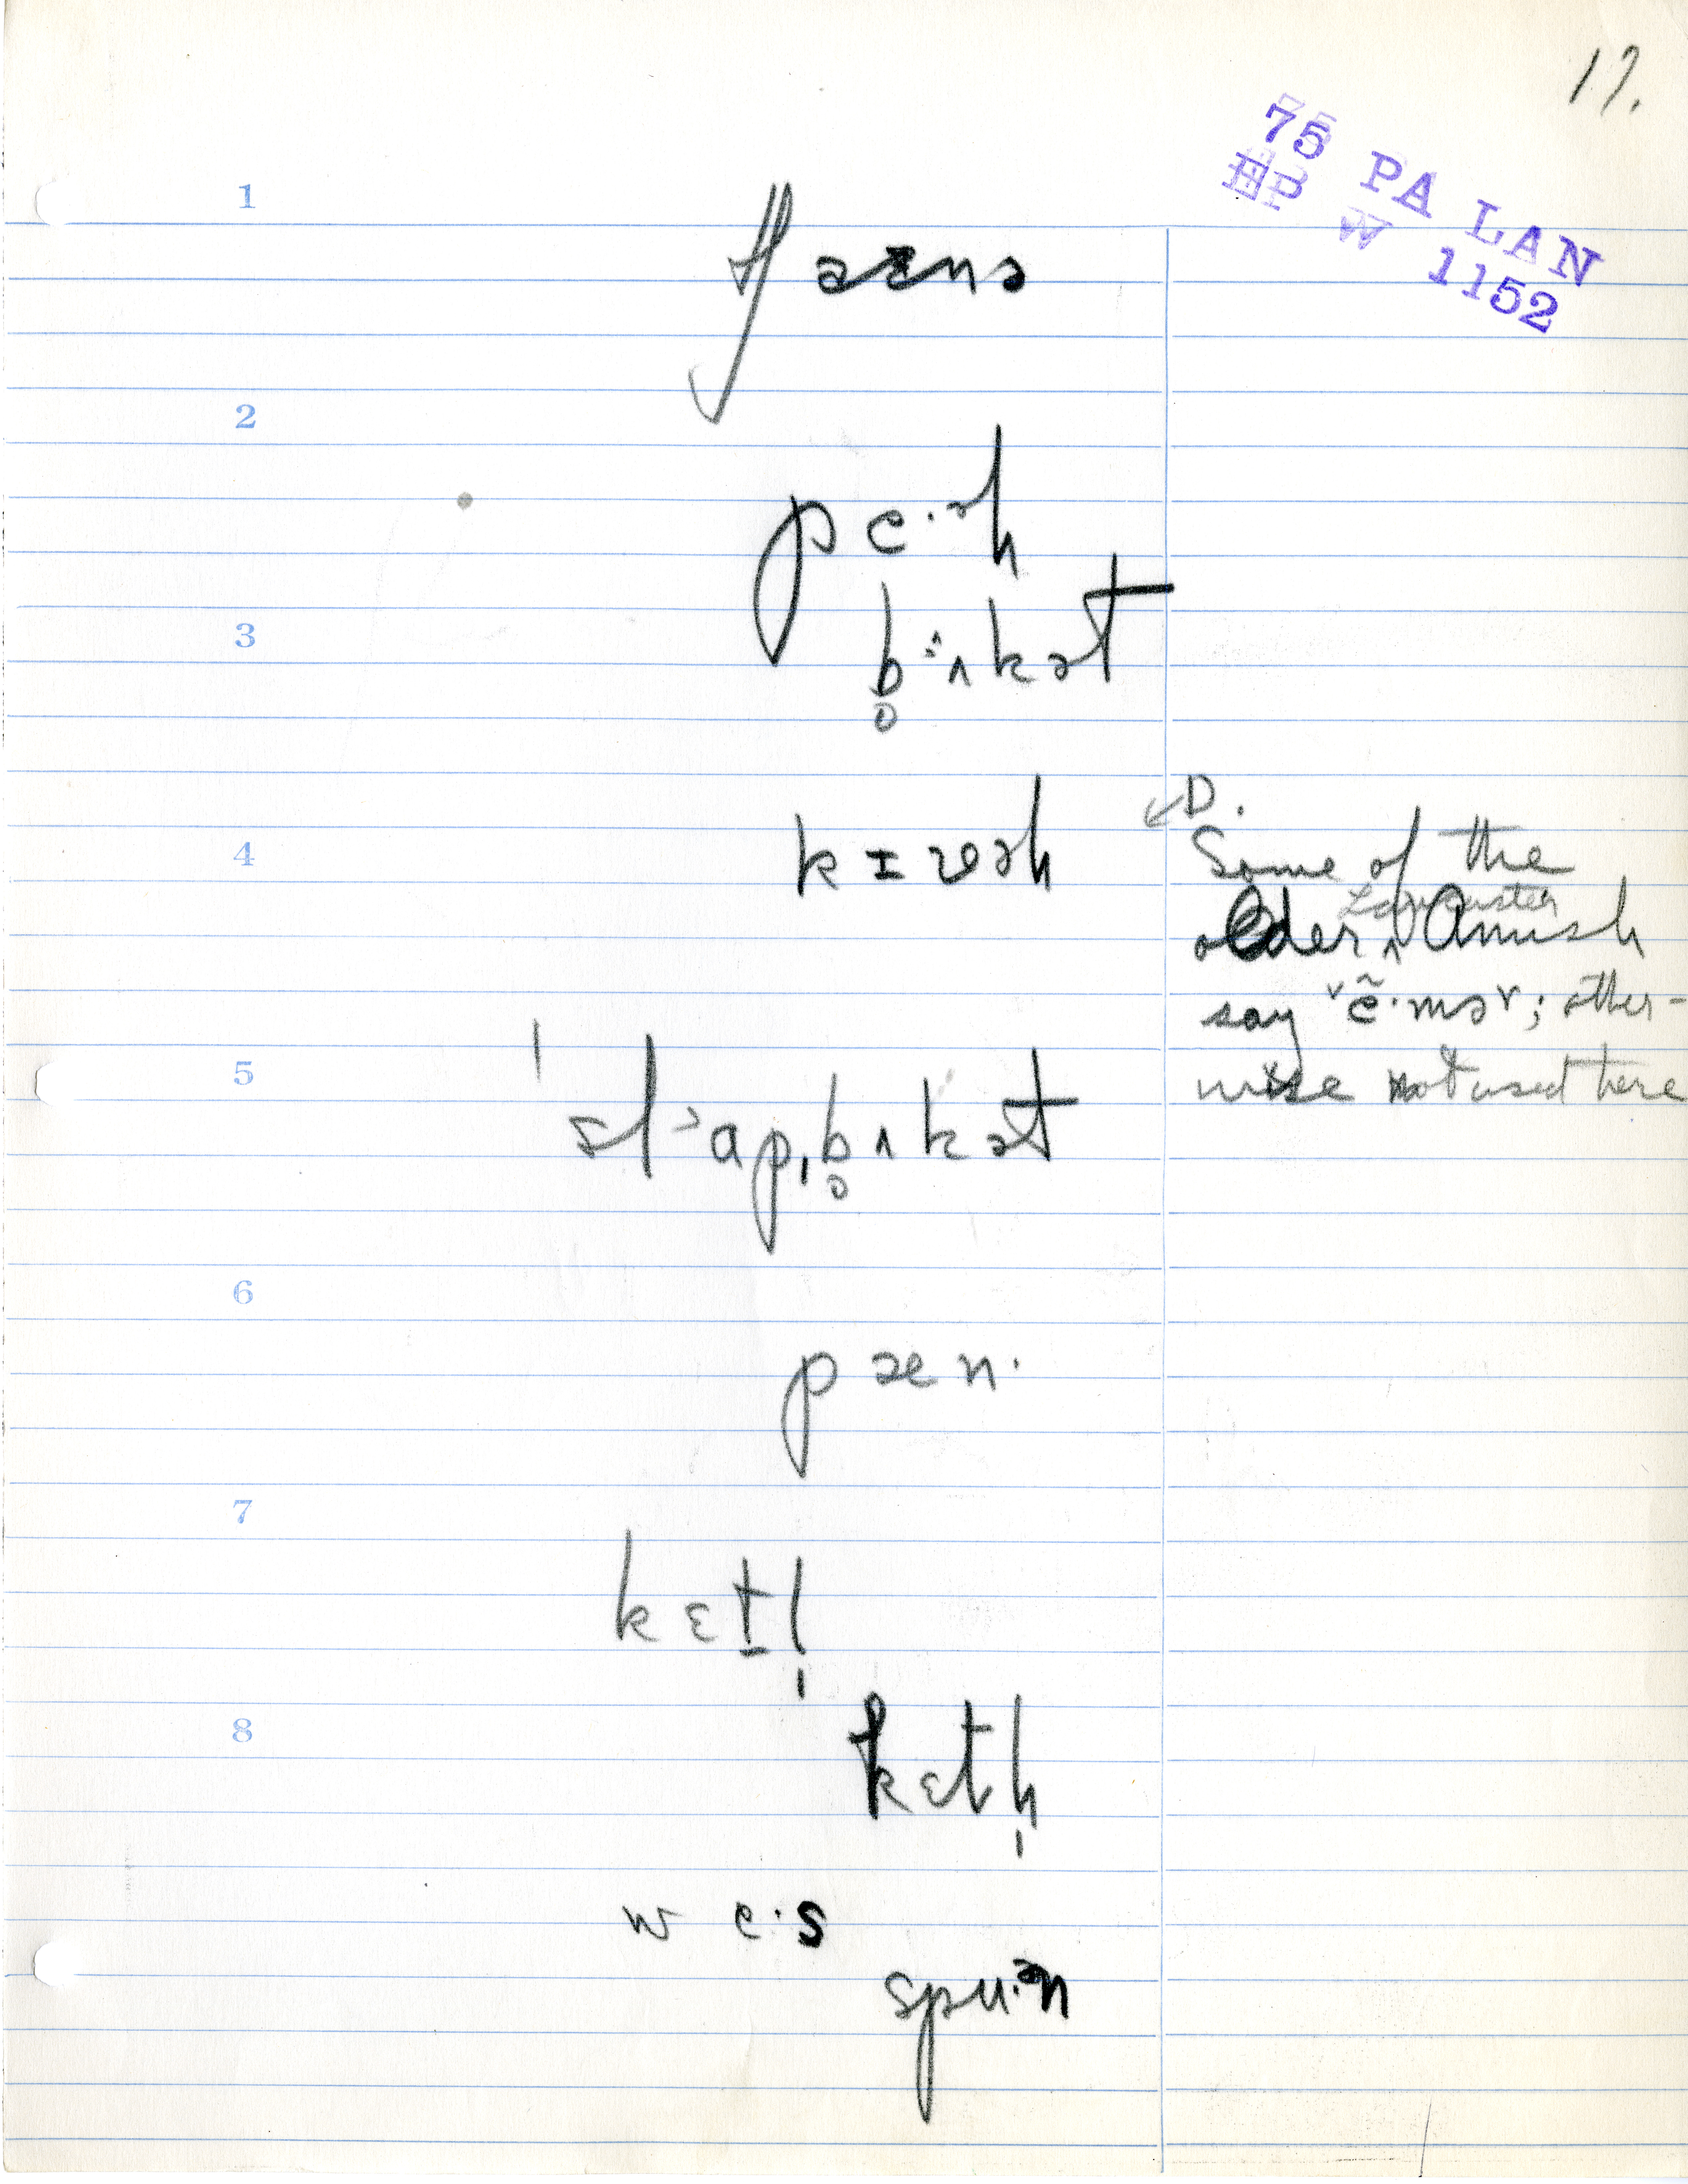 17.
75 PA LAN
HP W 1152
1
2
3
b̥ʌkət
4
kɪvəɫ
D.
Some of the
older Lancaster Amish
say ˅ẽ·mə˅; other-
wise not used here
5
slɔapˌb̥ʌkət
6
pæn·
7
kɛt̠l̩
8
kɛtɫ̩
we·s
spu·ᵊn